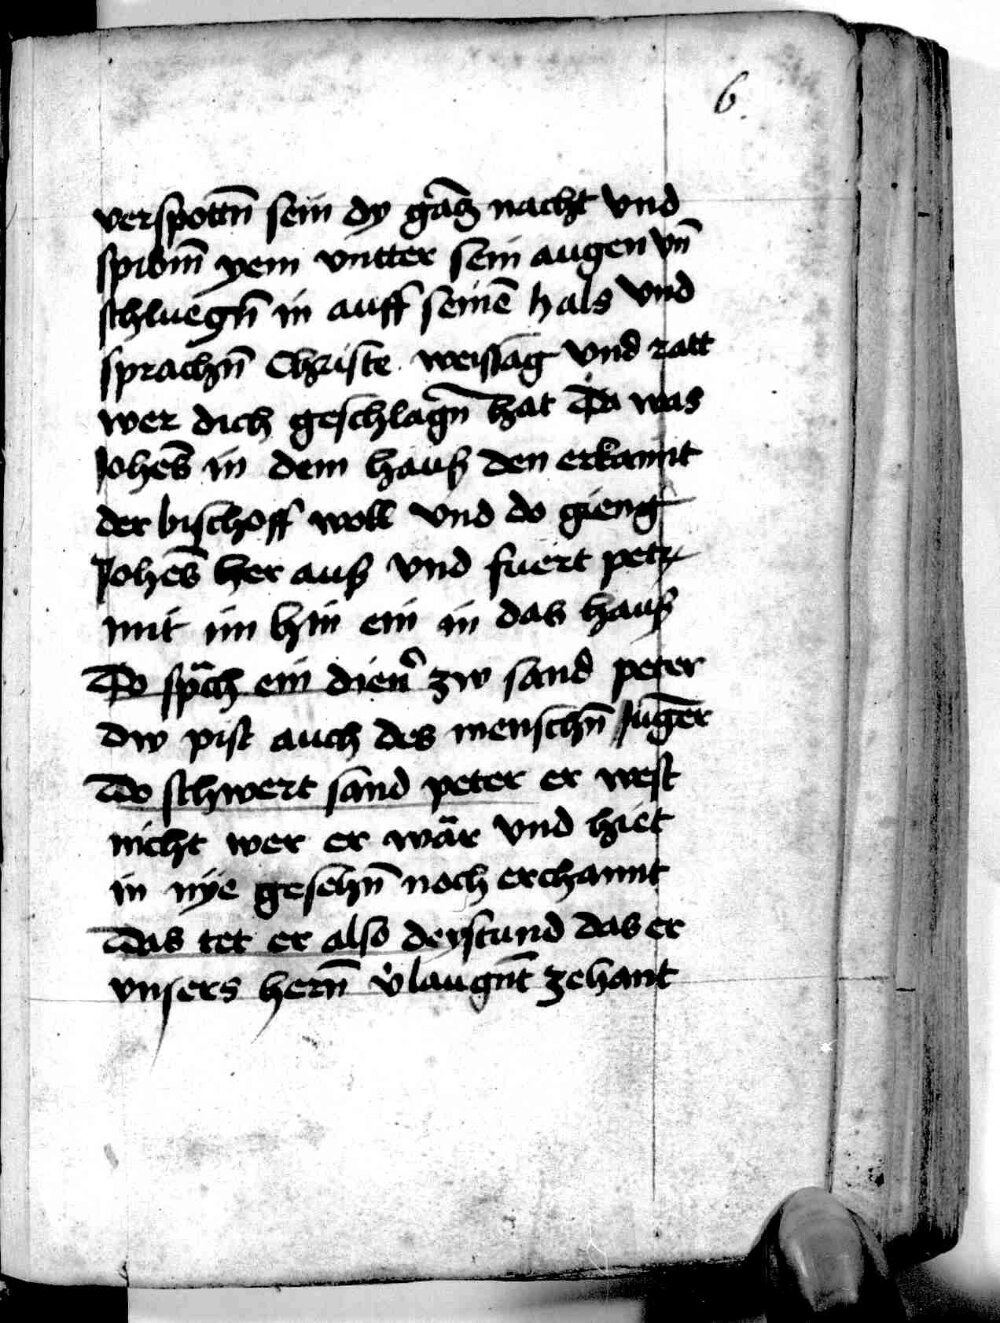 6.
verspottn̄ sein dy gāntz nacht vnd
spibm̄ yem vntter sein augen vn̄
schluegn̄ in auff seinē hals vnd
sprachn̄ Christe weissag vnd ratt
wer dich geschlagn̄ hat Da was
Johēs in dem hauß den erkannt
der bischoff woll vnd do gieng
Johēs her auß vnd fuert petr
mit im hin ein in das hauß
Do sp̄ch ein dien̄ zw sand peter
dw pist auch des menschn̄ Jūger
Do schwert sand peter er west
nicht wer er wär vnd hiet
in nye gesehn̄ noch erchannt
Das tet er also dreystund das er
vnsers hern̄ v̓laugn̄t zehant